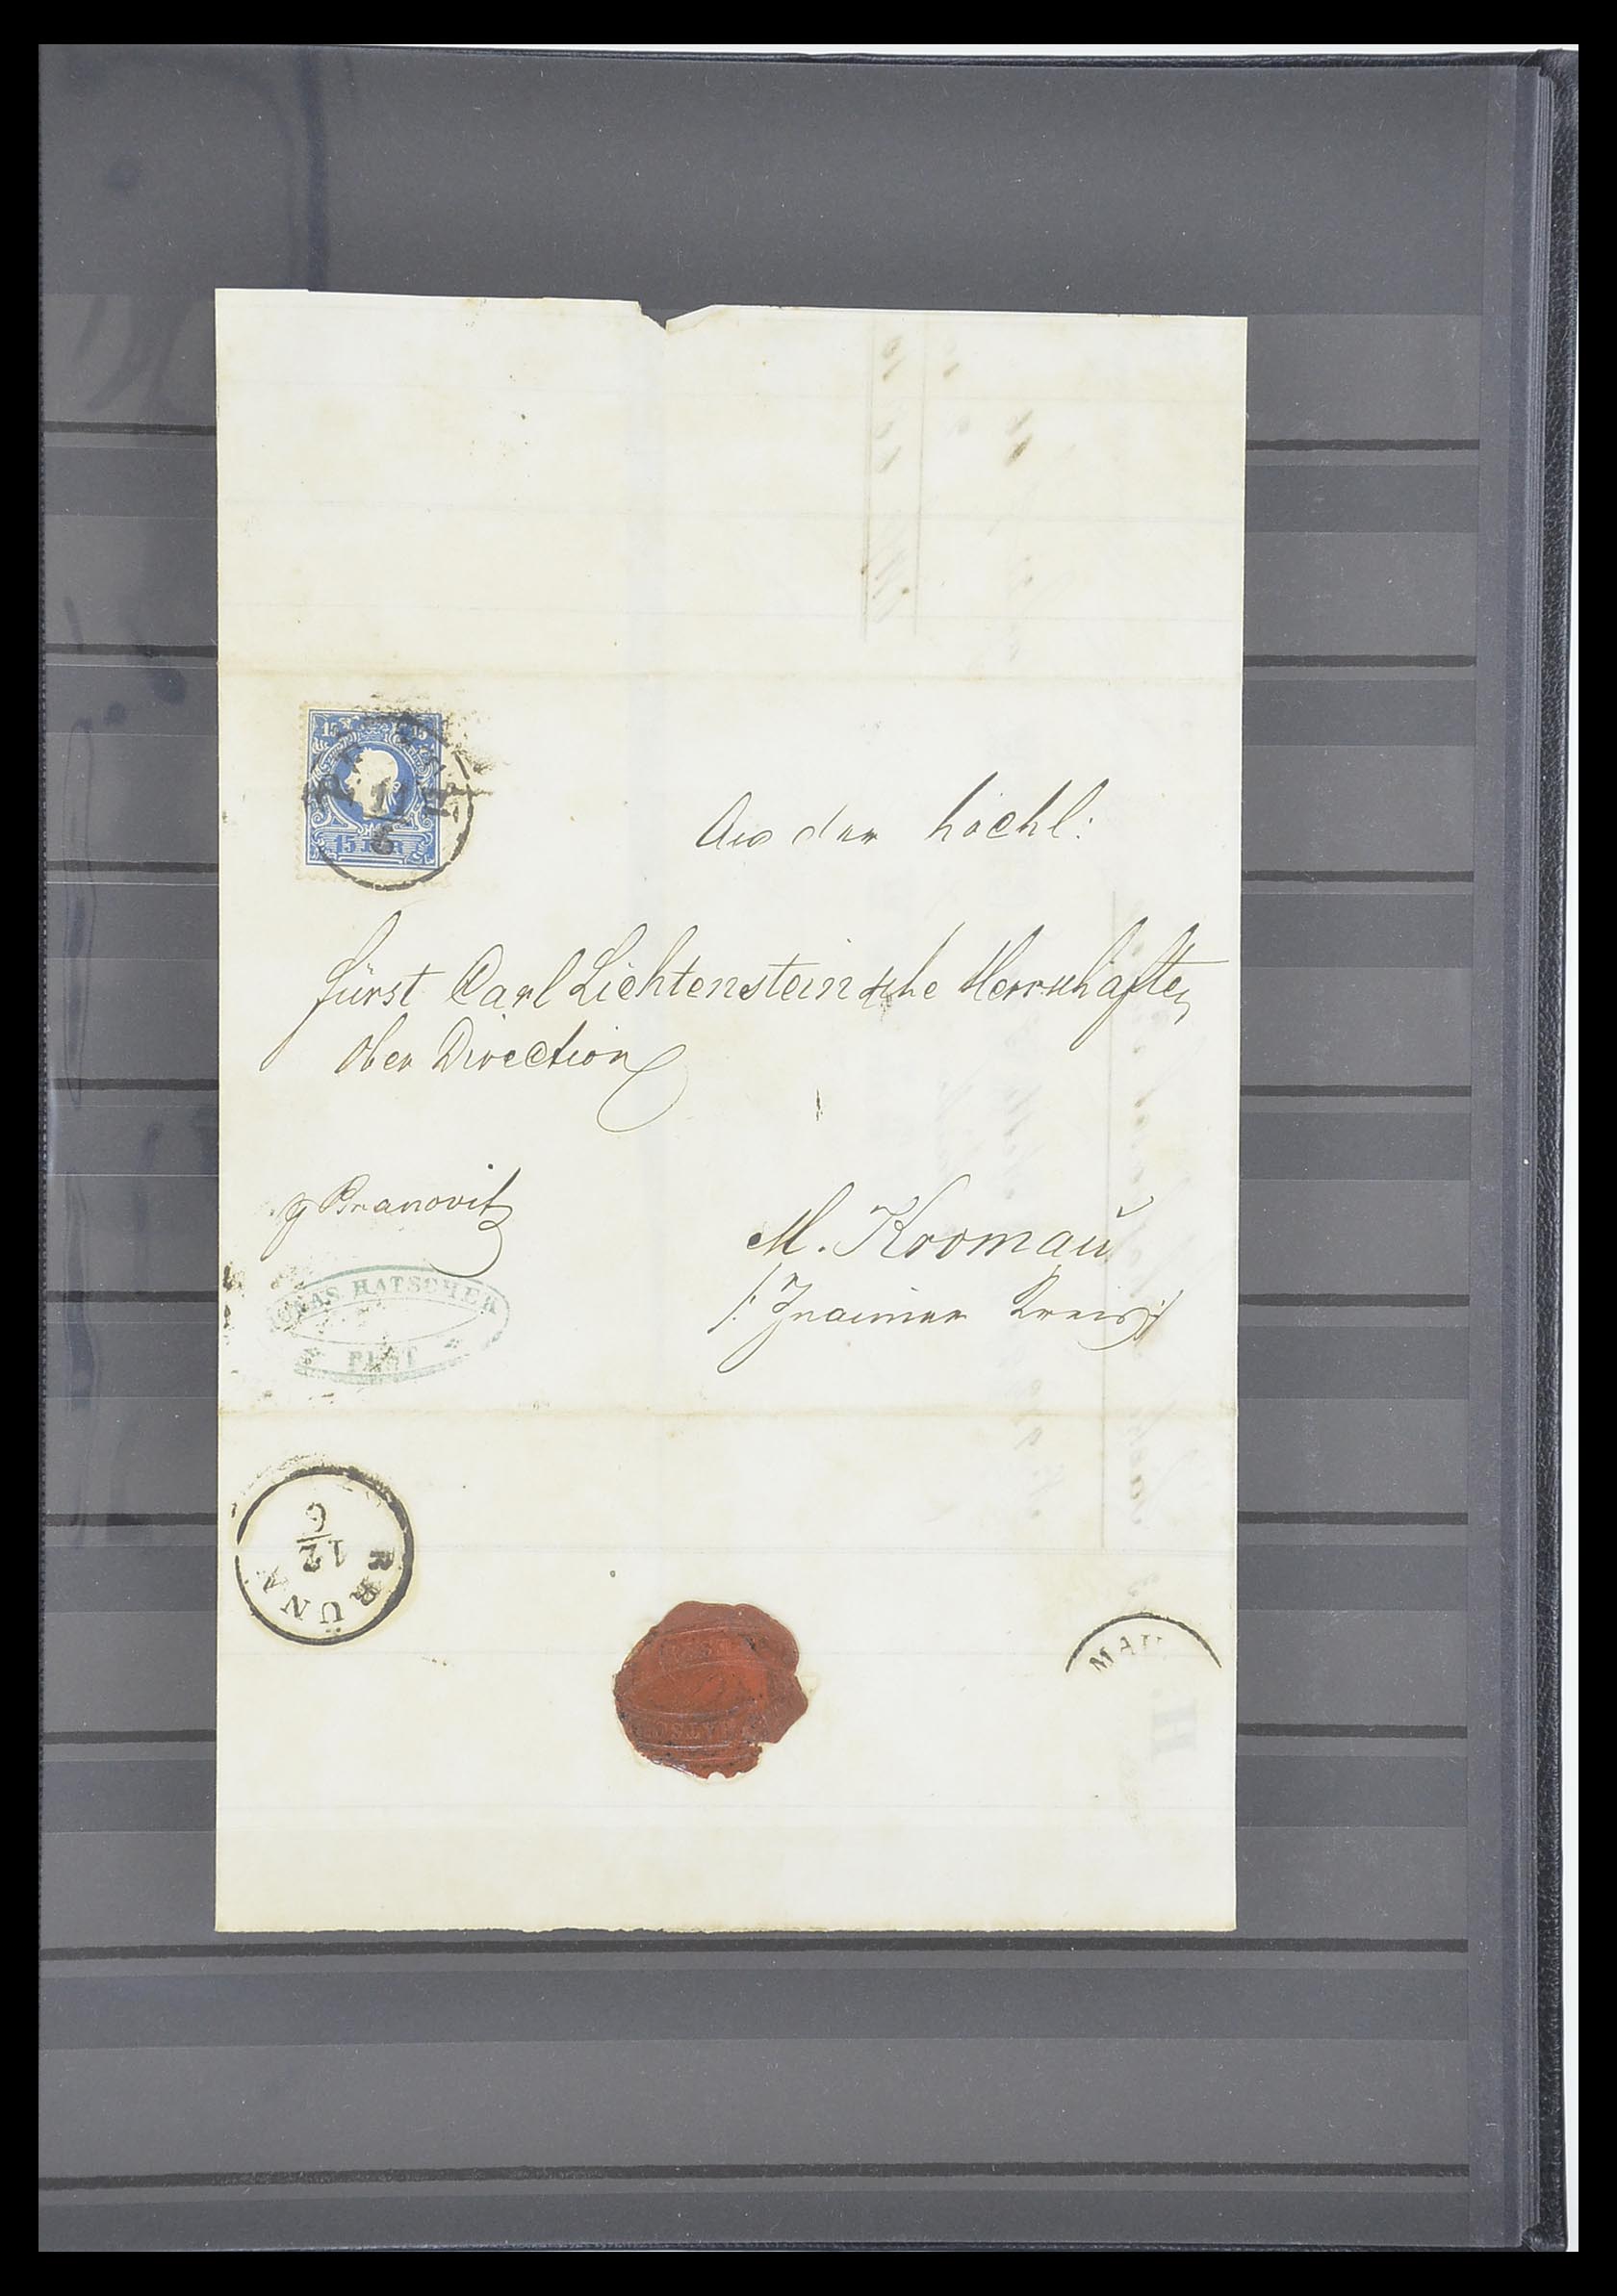 15 15
15 KR
1
6
An der hochl:
Fürst Carl Lichtensteinsche Herrschaften
Ober Direction
p Branovitz
M. Kromau
/: Znaimer Kreis :/
HATSCHEK
PEST
BRÜNN
12
6
MAU
H